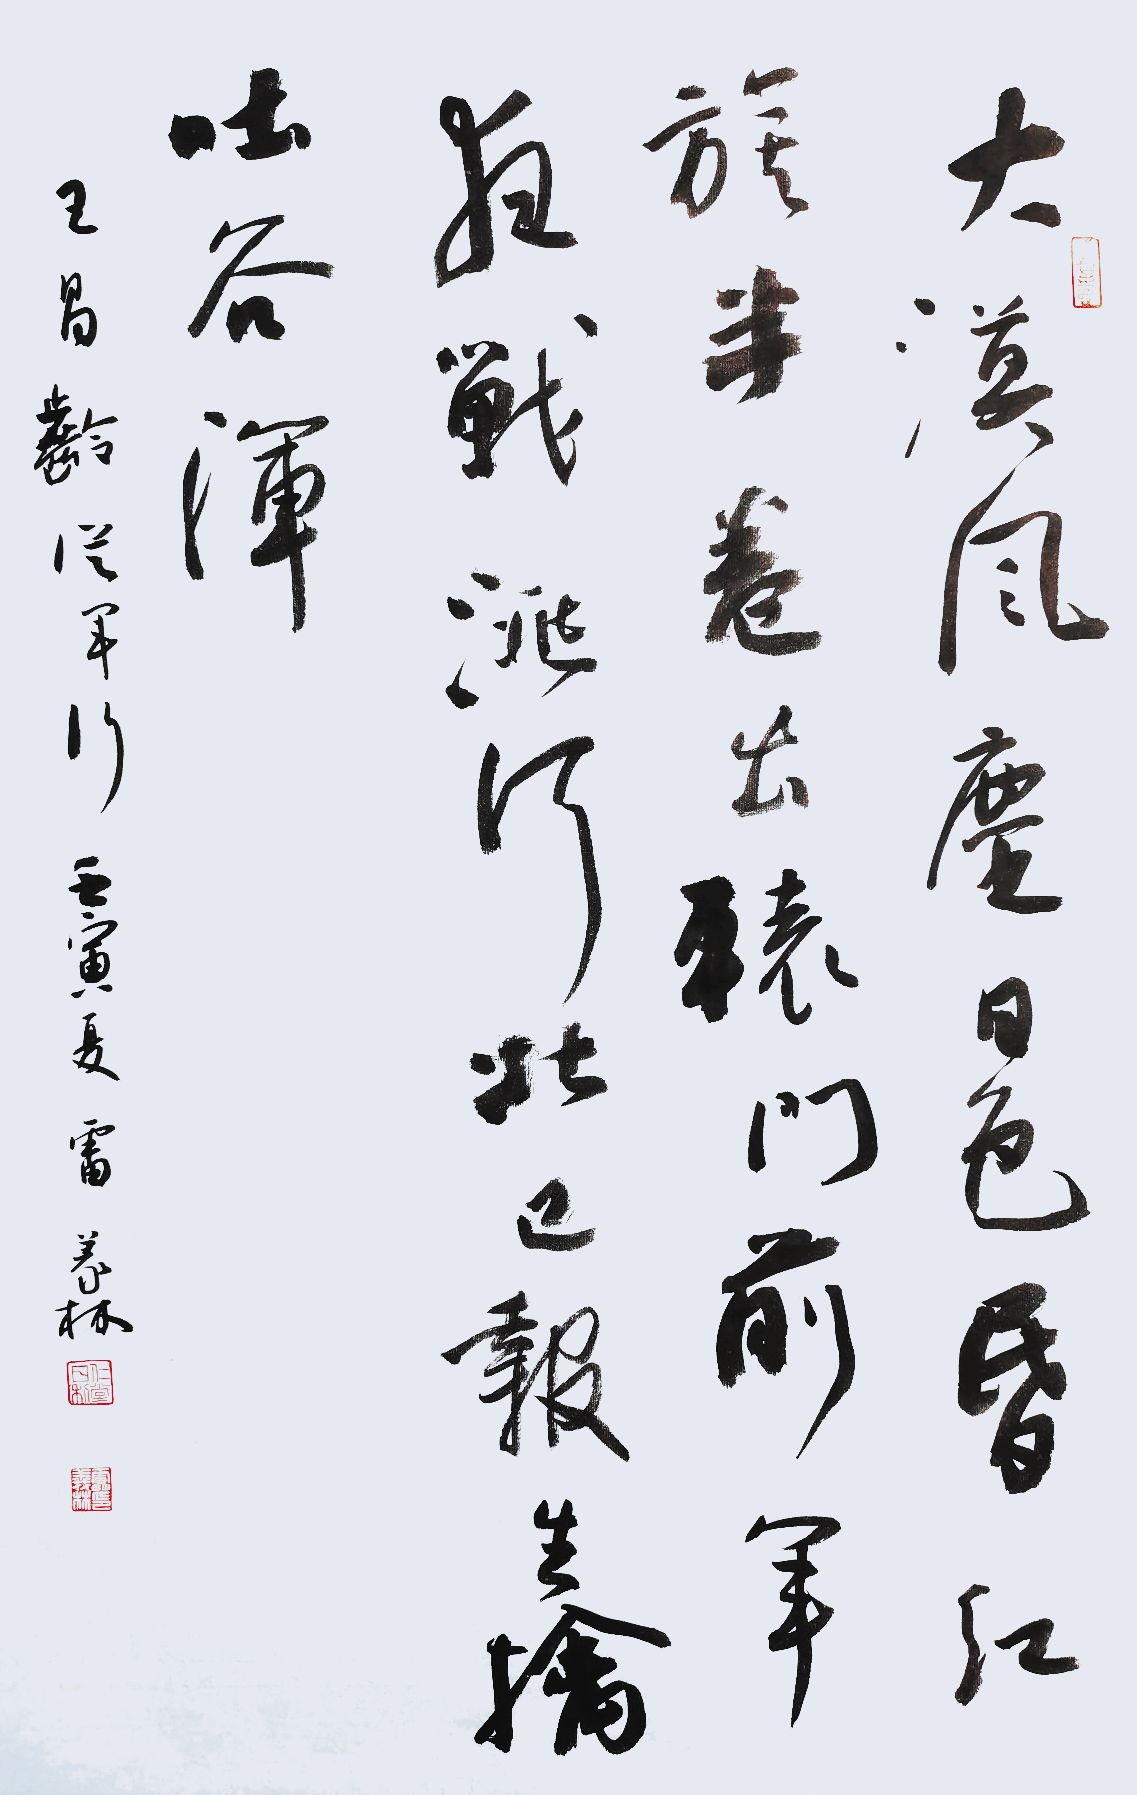 大漠風塵日色昏紅
旗半卷出轅門前軍
夜戰洮河北已報生擒
吐谷渾
王昌齡從軍行 壬寅夏 雷義林